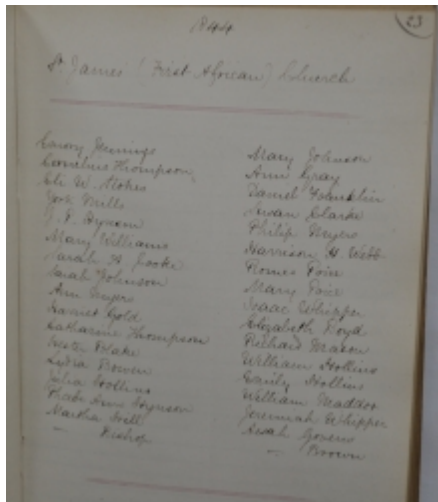 23
1844
St James' (First African) Church
Cornelius Thompson
Eli W. Stokes
Mills
Mary Williams
Sarah A Cooke
Sarah Johnson
Ann Meyers
Harriet Gold
Catharine Thompson
Hester Blake
Lydia Bowen
Julia
Phoebe Ann Hynson
Martha
— Bishop
Mary Johnson
Ann Gray
Daniel
Susan Clarke
Philip Meyers
Harrison H. Webb
Mary
Isaac Whipper
Elizabeth Boyd
Richard Mason
William Hollins
Emily Hollins
William Maddox
Jeremiah Whipper
Govens
— Brown